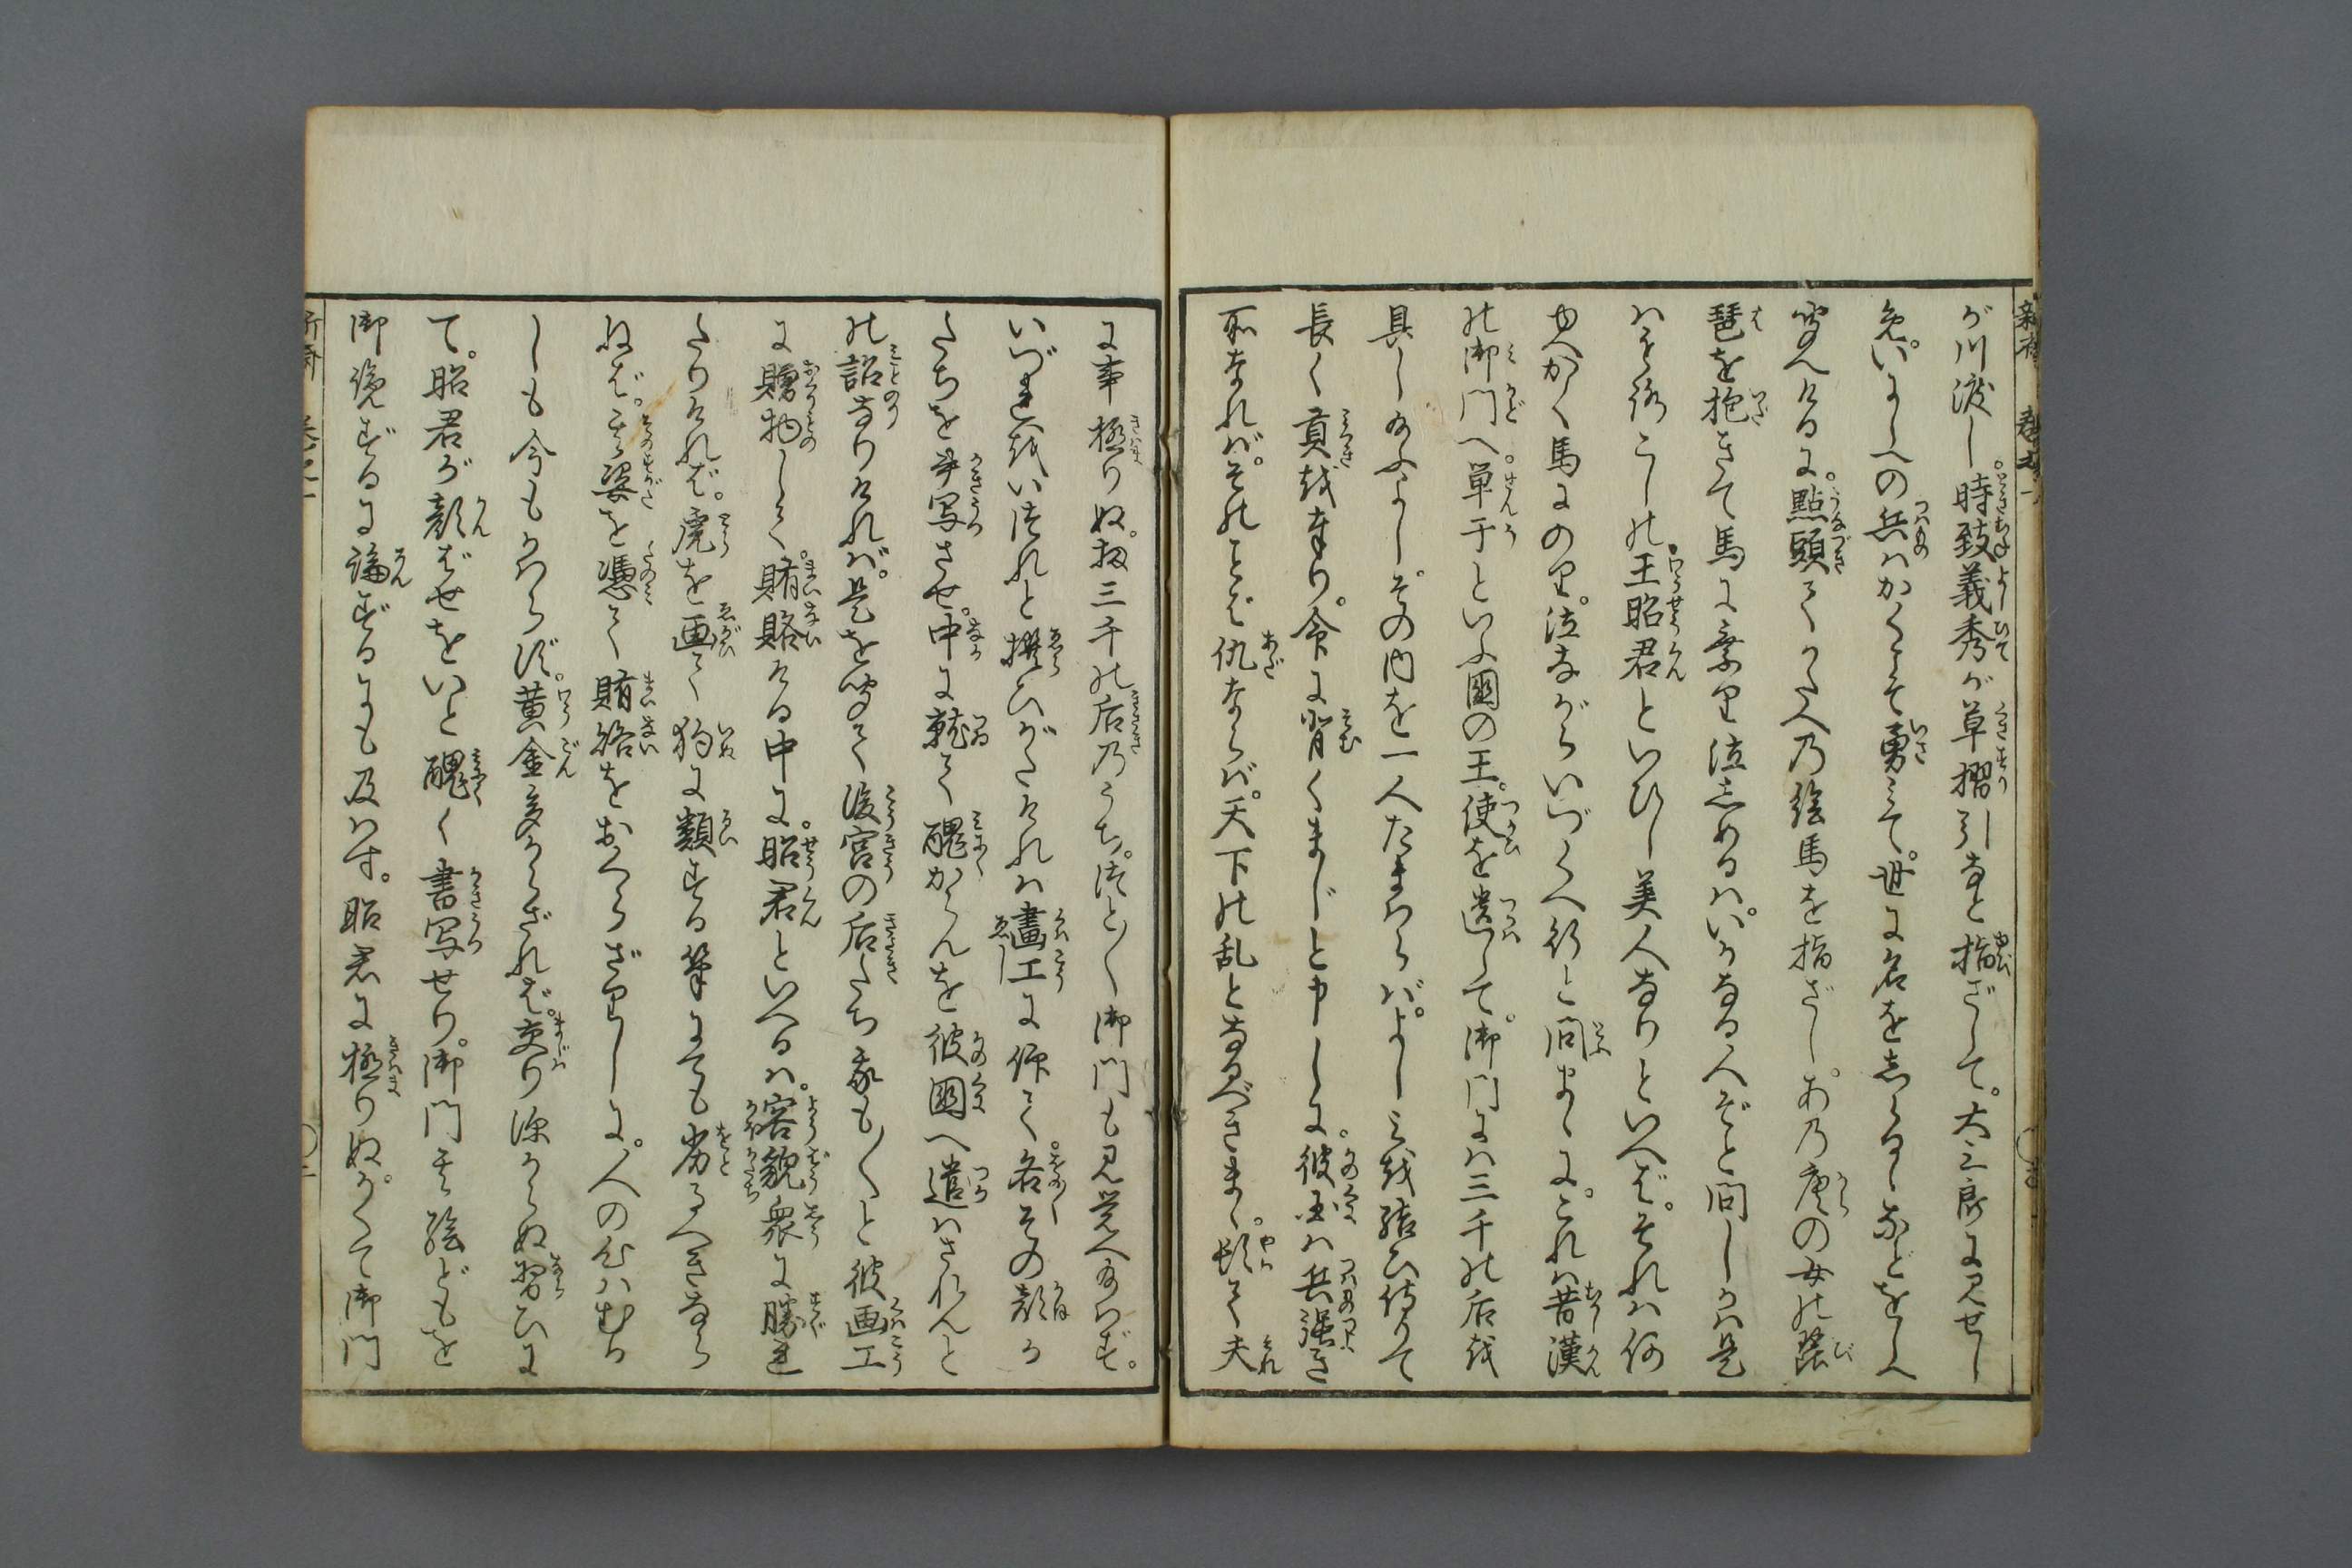 が川渡し。時致義秀が草摺引なと指ざして。大三郎に見せし
め。いにしへの兵はかくこそ勇みて。世に名をしらるゝなどをしへ
聞へけるに。點頭てかたへの絵馬を指ざし。あの唐の女の琵
琶を抱きて馬に乗り泣しめるは。いかなる人ぞと問しかは是
はその後こしの王昭君といひし美人なりといへば。それは何
ゆへかく馬にのり。泣ながらいづくへ行と問まゝに。これは昔漢
の御門へ。単于といふ國の王。使を遣して。御門には三千の后を
具し給ふよし。その内を一人たまはらば。よしみを結び侍りて
長く貢を奉り。命に背くまじと申しゝに。彼国は兵強き
所なれば。それとば仇ならば。天下の乱となるべきまゝ。頓て夫
に事極りぬ。扨三千の后のうち。つと〳〵御門も見覚へ給はず。
いづれをいづれと撰ひがたけれは畫工に仰て。各その顔か
たちを畫写させ。中に就て醜からんを彼國へ遣はされんと
の詔なりければ。是を聞て後宮の后たち我も〳〵と彼画工
に贈物して。賄賂ける中に。昭君といへるは。容貌衆に勝れ
たりければ。虎を画て狗に類する筆にても劣るへきなら
ねば。其姿を憑て賄賂をおくらざりしに。人の心はむか
しも今もかはらず。黄金多からざれば。交り深からぬ習ひに
て。昭君が顔ばせをいと醜く書写せり。御門其絵どもを
御覧ずるに論ずるにも及はす。昭君に極りぬ。かくて御門